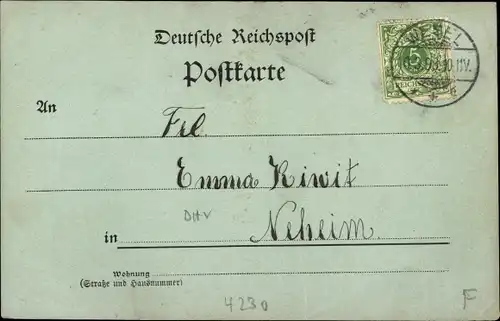 Deutsche Reichspost
Postkarte
WESEL
5
An
Frl.
Emma Kiwit
DHV
in Neheim.
Wohnung
(Straße und Hausnummer)
4230
F